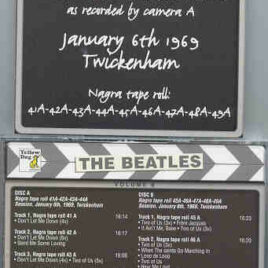 as recorded by camera A
January 6th 1969
Twickenham
Nagra tape roll:
41A-42A-43A-44A-45A-46A-47A-48A-49A
Yellow Dog
THE BEATLES
VOLUME 8
DISC A
Nagra tape roll 41A-42A-43A-44A
Session, January 6th, 1969, Twickenham
Track 1, Nagra tape roll 41 A 16:14
• Don't Let Me Down (6x)
Track 2, Nagra tape roll 42 A 16:17
• Don't Let Me Down (9x)
• Send Me Some Loving
Track 3, Nagra tape roll 43 A
• Don't Let Me Down (4x) • Two of Us (5x)
DISC B
Nagra tape roll 45A-46A-47A-48A-49A
Session, January 6th, 1969, Twickenham
Track 1, Nagra tape roll 45 A 16:23
• Two of Us (3x) • Frere Jacques
• It Ain't Me, Babe • Two of Us (3x)
Track 2, Nagra tape roll 46 A 16:30
• Two of Us (3x)
• When The Saints Go Marching In
• Loop de Loop
• Two of Us